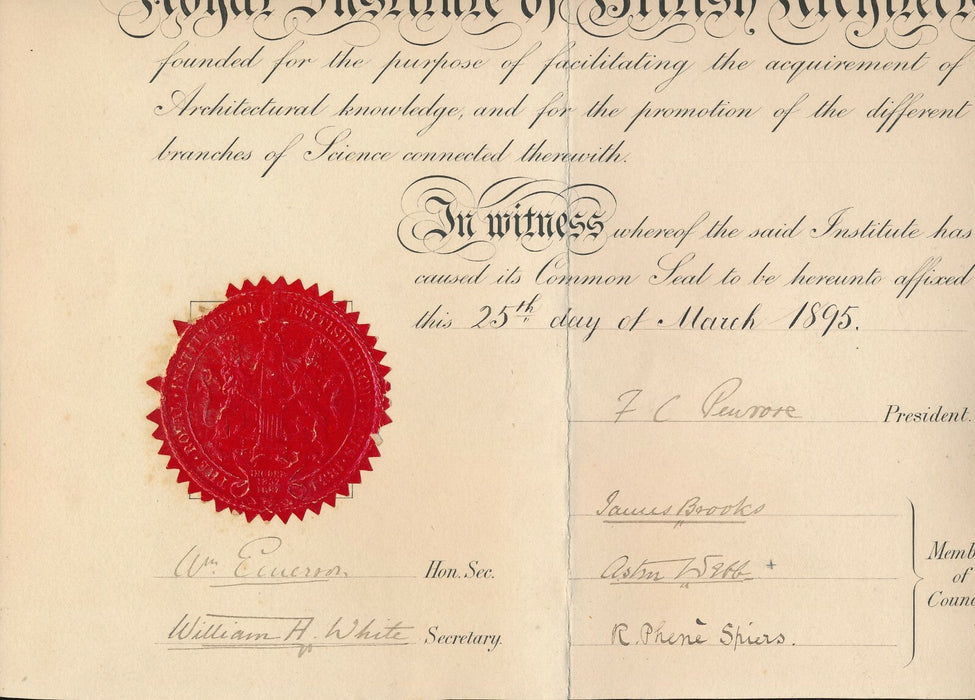 Royal Institute of British Architect
founded for the purpose of facilitating the acquirement of
Architectural knowledge, and for the promotion of the different
branches of Science connected therewith.
In witness whereof the said Institute has
caused its Common Seal to be hereunto affixed
this 25th day of March 1895.
F C Penrose President.
James Brooks
Aston Webb
Memb
of
Counc
R. Phenè Spiers.
Wm. Emerson Hon. Sec.
William H. White Secretary.
THE ROYAL INSTITUTE OF BRITISH